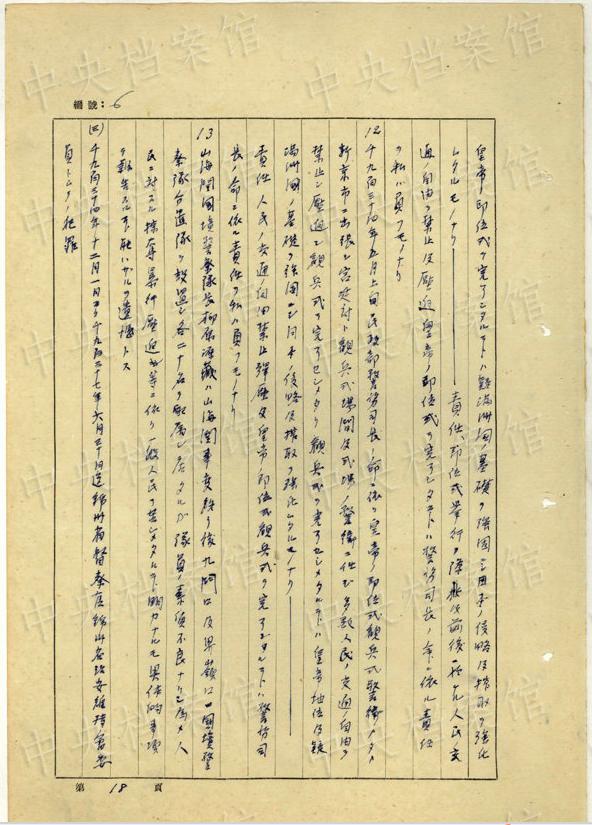 編號：6
皇帝ノ即位式ヲ完了シタルコトハ満洲国ノ基礎ヲ強固ニシ日本ノ侵略及搾取ヲ強化
シタルモノナリ 責任、即位式挙行ノ 及前後ニ於ケル人民交
通ノ自由ヲ禁止及圧迫皇帝ノ即位式ヲ完了シタコトハ警務司長ノ命ニ依ル責任
ヲ私ハ負フモノナリ
12 千九百三十四年 月上旬民政部警務司長ノ命ニ依リ皇帝ノ即位式観兵式警衛ノタメ
新京市ニ出張シ宮廷対ト観兵式場間及式場ノ警衛ニ任ジ多数人民ノ交通ノ自由ヲ
禁止シ圧迫シ観兵式ヲ完了セシメタリ観兵式ヲ完了セシメタルコトハ皇帝ノ地位及
満洲国ノ基礎ヲ強固ニシ日本ノ侵略及搾取ヲ強化シタルモノナリ
責任 人民ノ交通ノ自由禁止弾圧及皇帝ノ即位式観兵式ヲ完了シタルコトハ警務司
長ノ命ニ依ル責任ヲ私ハ負フモノナリ
13 山海関国境警察隊長柳 ハ山海関事変終リ後九門口及界嶺口ニ国境警
察隊分遣隊ヲ設置シ各二十名ヲ配属シ居タルガ隊員ノ素質不良ナリシ為メ人
民ニ対スル掠奪暴行圧迫 等ニ依リ一般人民ヲ苦シメタルコト明カナルモ具体的事項
ヲ報告スルコト能ハザルヲ遺憾トス
(三) 千九百三十四年十二月一日ヨリ千九百三十七年六月三十日迄錦州省警察庁 治安維持會委
員トシテノ犯罪
第 18 頁
中央档案馆